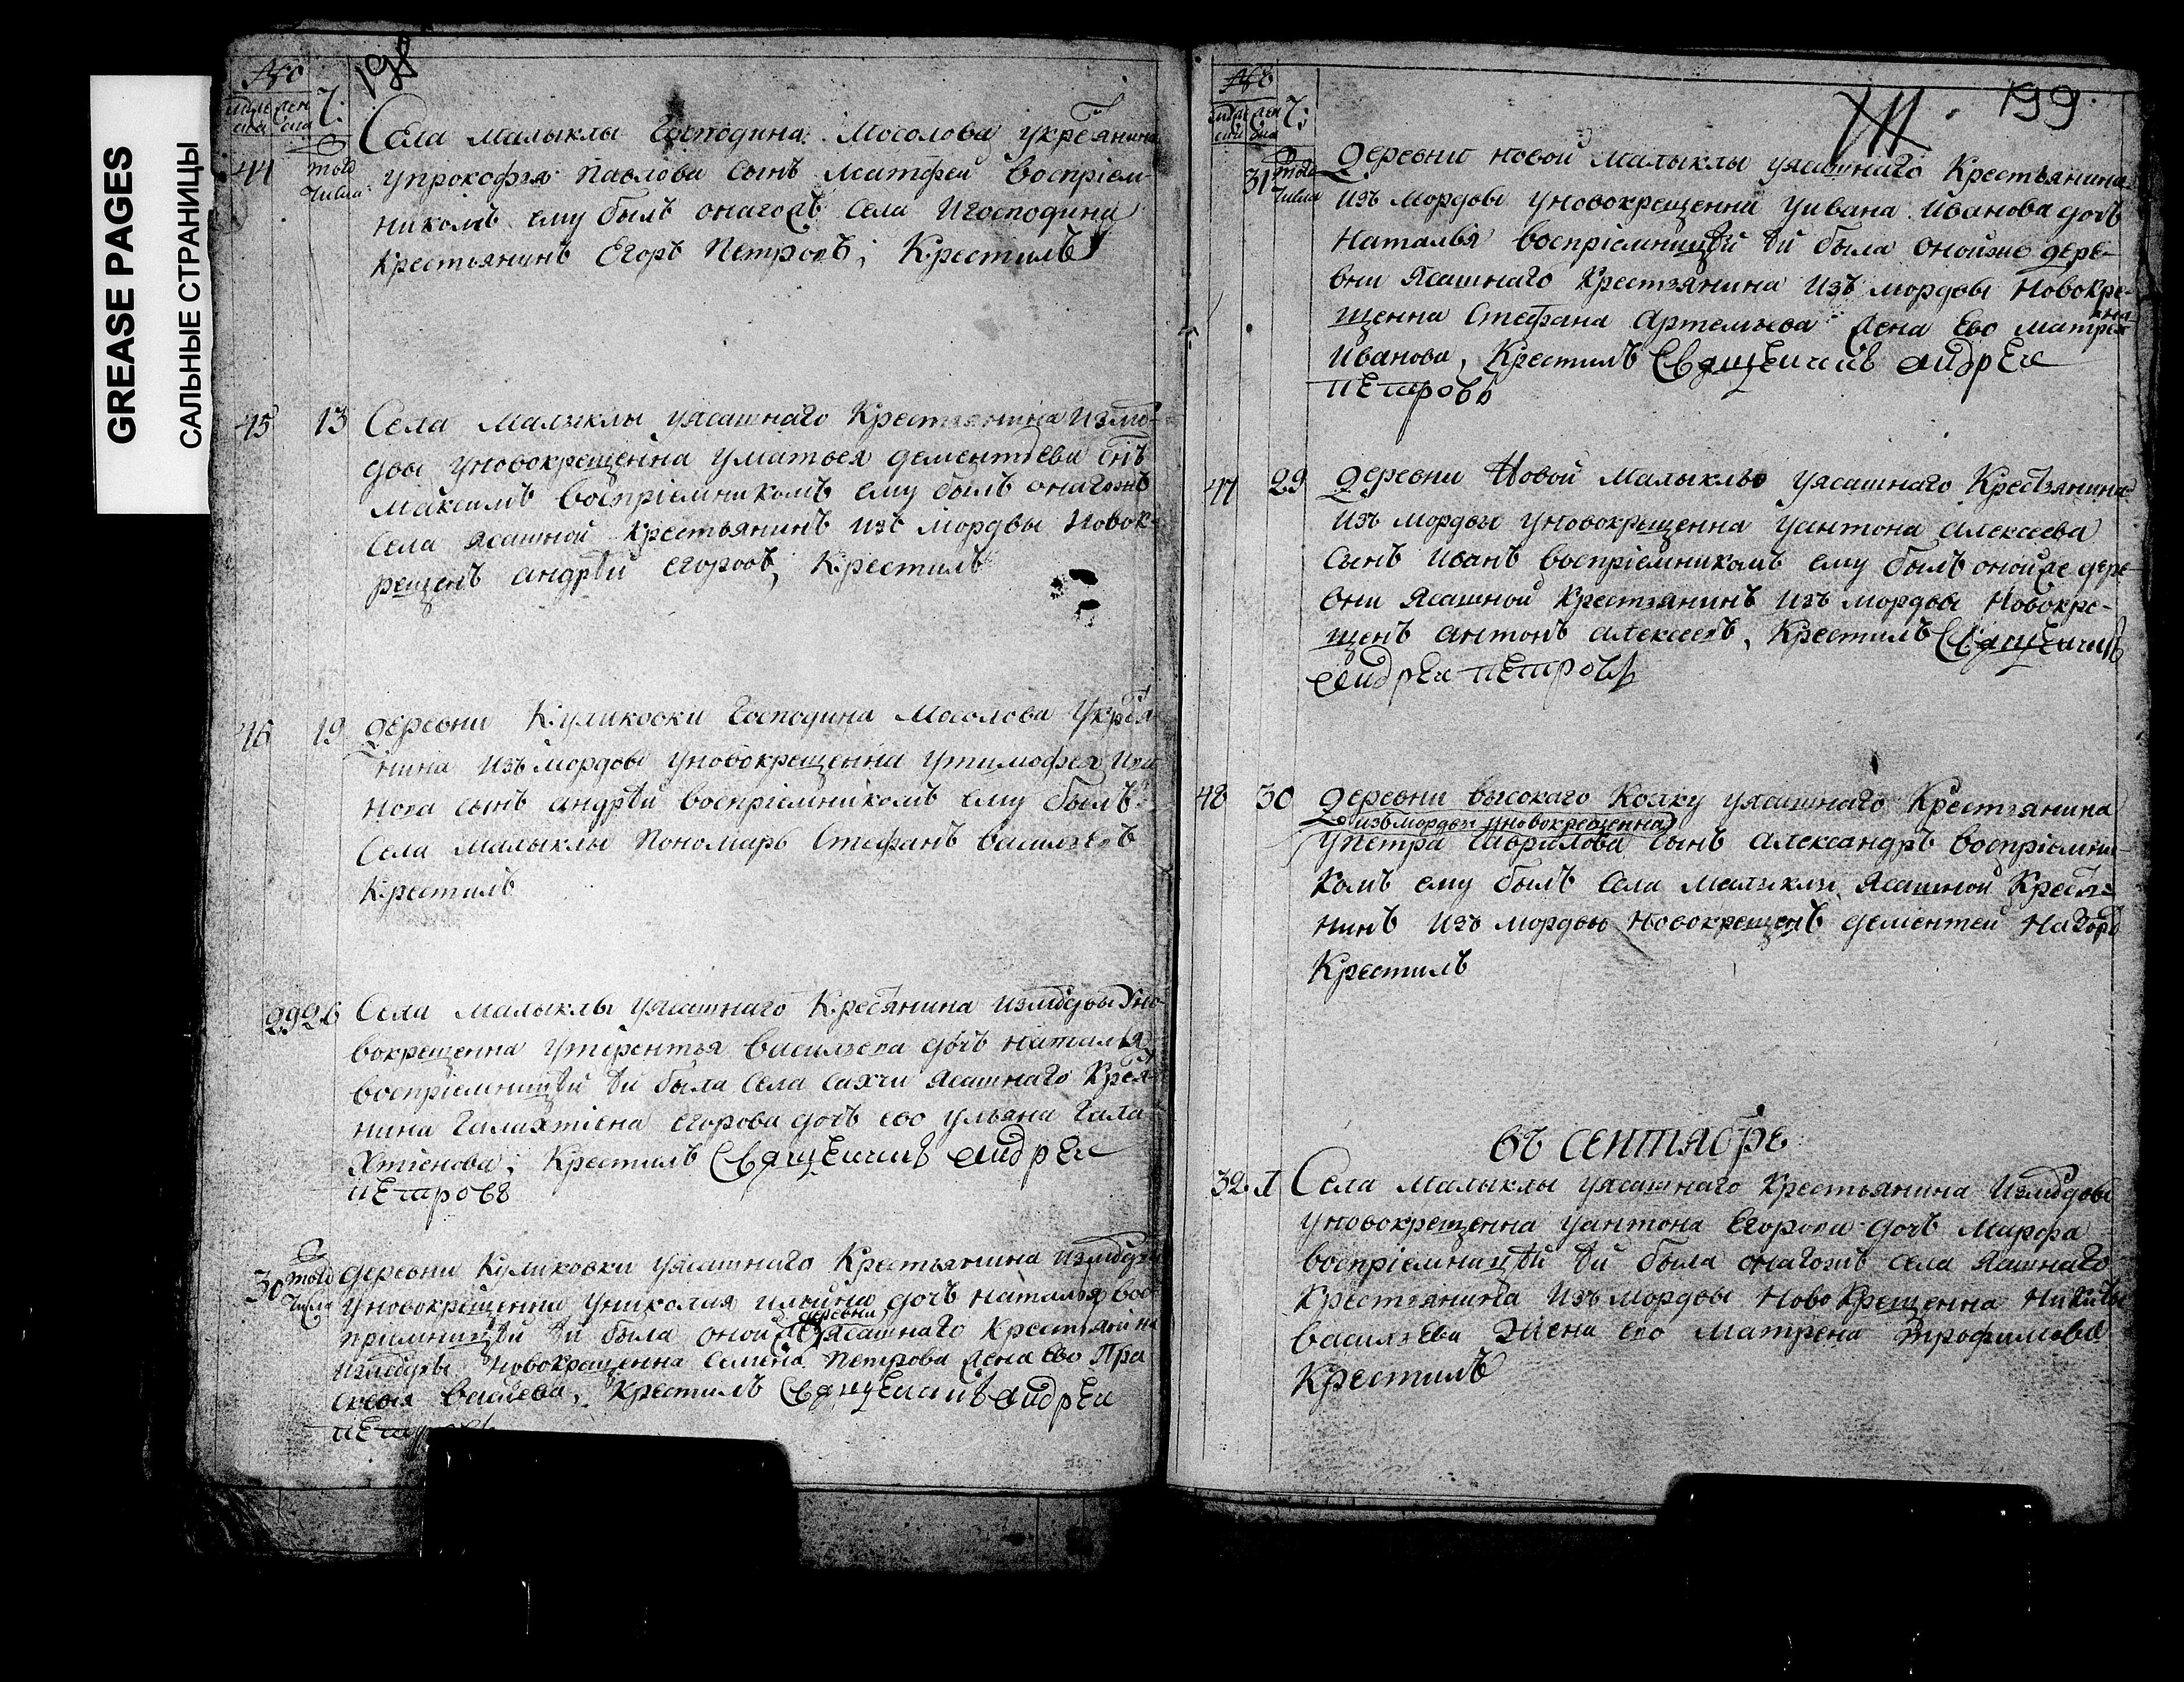 GREASE PAGES
САЛЬНЫЕ СТРАНИЦЫ
198
№
Ч:
44
того
числа
Села малыклы господина Мосолова укрестянина
упрокофья павлова сынъ матфей восприем-
никомъ ему былъ онагожъ села игосподина
крестьянинъ Егоръ Петровъ, Крестилъ
45 13 Села малыклы уясашнаго Крестьянина измор-
двы уновокрещенна уматвея дементьева снъ
максимъ восприемникомъ ему былъ онагожъ
села ясашной крестьянинъ изъ мордвы новок-
рещенъ андрѣй егоровъ, Крестилъ
46 19 деревни Куликовки господина Мосолова укрестя-
нина изъ мордвы уновокрещенна утимофея Ива
нова сынъ андрѣй восприемникомъ ему былъ
села малыклы пономарь Стефанъ васильевъ
Крестилъ
29 26 Села малыклы уясашнаго Крестянина измордвы уно-
вокрещенна утерентья васильева дочь наталья
восприемницѣй ѣй была села сахчи ясашнаго крестя-
нина галахтиена егорова дочь ево ульяна гала
хтиенова, Крестилъ Священникъ андреи
петровъ
30 того
числа
деревни Куликовки уясашнаго Крестьянина измордвы
уновокрещенна униколая ильина дочь наталья вос-
деревни
примницѣй ѣй была оной же ясашнаго крестьянина
измордвы новокрещенна семена петрова жена ево Пра
сковья василева, Крестилъ Священникъ андреи
петровъ
199
№
Ч:
31 того
числа
деревни новой малыклы уясашнаго Крестьянина
изъ мордвы уновокрещенна уивана иванова дочь
наталья восприемницѣй ѣй была онойже дере-
вни ясашнаго крестьянина изъ мордвы новокре-
щенна стефана артемьева жена ево матре
на
иванова, Крестилъ Священникъ андреи
петровъ
47 29 деревни Новой малыклы уясашнаго Крестьянина
изъ мордвы уновокрещенна уантона алексеева
сынъ иванъ восприемникомъ ему былъ онойже дере
вни ясашной крестьянинъ изъ мордвы новокре-
щенъ антонъ алексеевъ, Крестилъ Священникъ
андреи петровъ
48 30 деревни высокаго колку уясашнаго крестьянина
изъ мордвы уновокрещенна
упетра гаврилова сынъ александръ восприемни
комъ ему былъ села малыклы ясашной крестя-
нинъ изъ мордвы новокрещенъ дементей
Крестилъ
въ сентябре
32 1 Села малыклы уясашнаго крестьянина измордвы
уновокрещенна уантона егорова дочь марфа
восприемницѣй ѣй была онагожъ села яашнаго
крестьянина изъ мордвы новокрещенна никиты
васильева жена ево матрена трофимова
Крестилъ